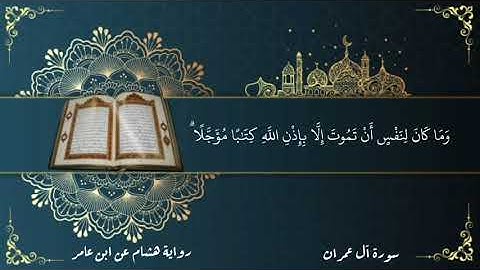 وَمَا كَانَ لِنَفْسٍ أَنْ تَمُوتَ إِلَّا بِإِذْنِ اللَّهِ كِتَٰبًا مُؤَجَّلًا ۗ
سورة آل عمران
رواية هشام عن ابن عامر